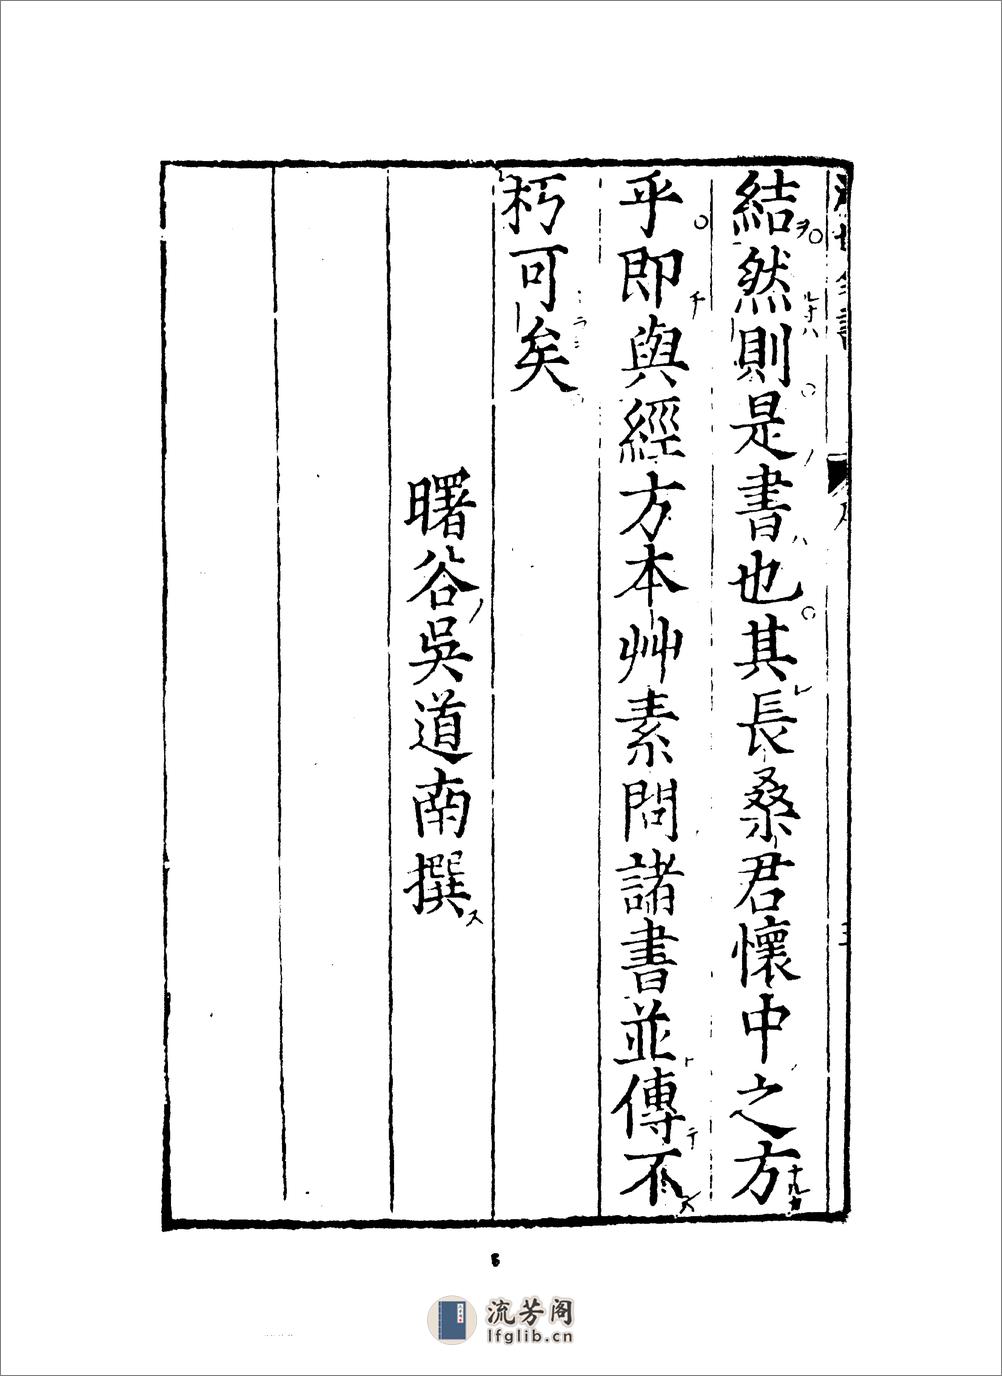 結然則是書也其長桑君懷中之方
乎即與經方本艸素問諸書並傳不
朽可矣
曙谷吳道南撰
5
流芳阁
lfglib.cn